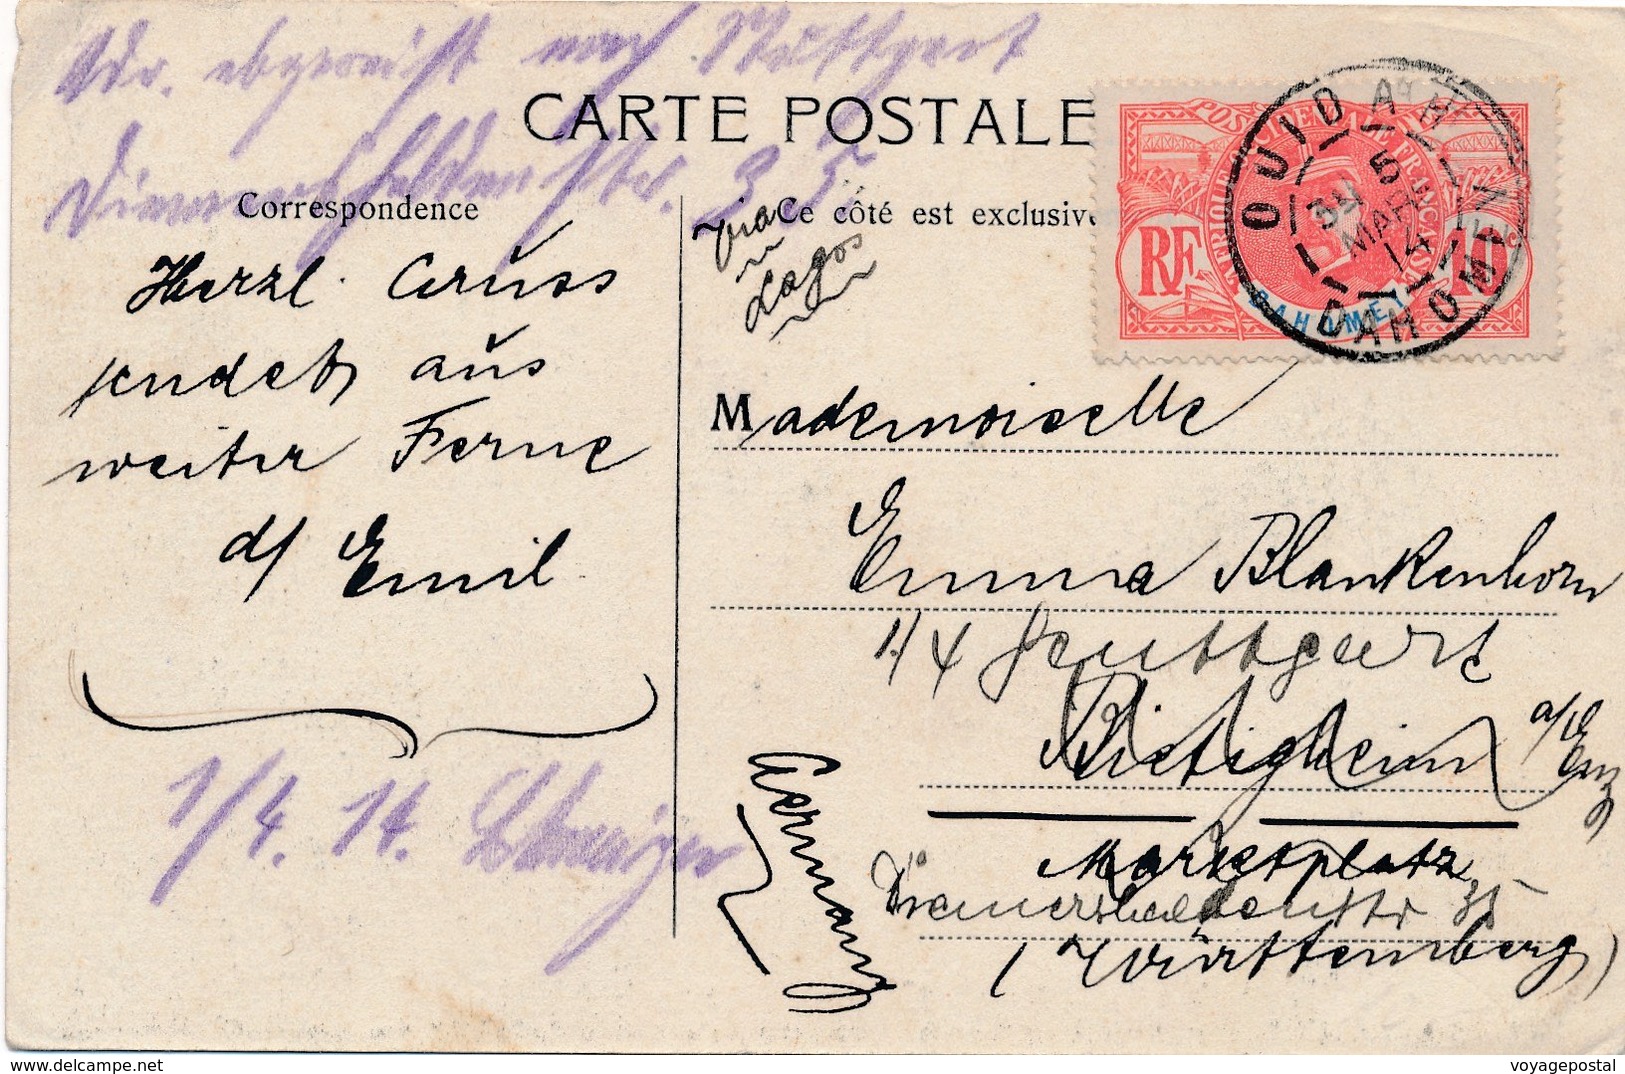 Adr. abgereist nach Stuttgart
Diemershaldenstr. 35
CARTE POSTALE
Correspondence
Ce côté est exclusive
via
Lagos
POSTES
AFRIQUE
FRANÇAISE
RF
10
DAHOMEY
OUIDAH
5
MARS
14
DAHOMEY
Herzl. Gruss
sendet aus
weiter Ferne
d/ Emil
Mademoiselle
Emma Blankenhorn
1/4 Stuttgart
Bietigheim a/Enz
Marktplatz
Diemershaldenstr 35
(Württemberg)
Germany
1/4. 14.
delcampe.net
voyagepostal